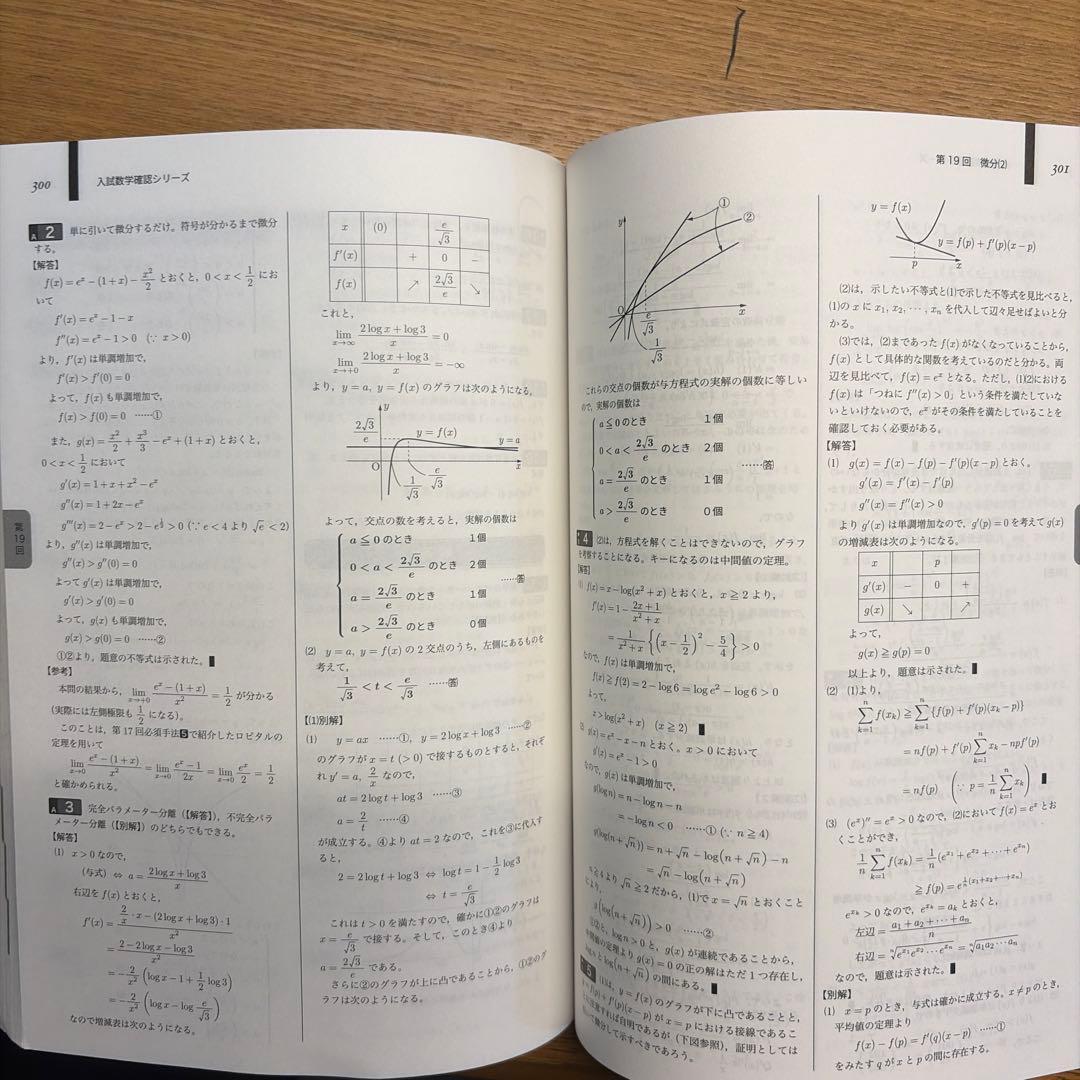 300
入試数学確認シリーズ
A 2 単に引いて微分するだけ。符号が分かるまで微分
する。
【解答】
f(x)=e^x-(1+x)-x^2/2 とおくと，0<x<1/2 にお
いて
f'(x)=e^x-1-x
f''(x)=e^x-1>0 (∵ x>0)
より，f'(x) は単調増加で，
f'(x)>f'(0)=0
よって，f(x) も単調増加で，
f(x)>f(0)=0 ……①
また，g(x)=x^2/2+x^3/3-e^x+(1+x) とおくと，
0<x<1/2 において
g'(x)=1+x+x^2-e^x
g''(x)=1+2x-e^x
g'''(x)=2-e^x>2-e^{1/2}>0 (∵ e<4 より √e<2)
より，g''(x) は単調増加で，
g''(x)>g''(0)=0
よって g'(x) は単調増加で，
g'(x)>g'(0)=0
よって，g(x) も単調増加で，
g(x)>g(0)=0 ……②
①②より，題意の不等式は示された。
【参考】
本問の結果から，lim_{x→+0} (e^x-(1+x))/x^2=1/2 が分かる
(実際には左側極限も 1/2 になる)。
このことは，第17回必須手法5で紹介したロピタルの
定理を用いて
lim_{x→0} (e^x-(1+x))/x^2=lim_{x→0} (e^x-1)/2x=lim_{x→0} e^x/2=1/2
と確かめられる。
A 3 完全パラメーター分離（【解答】），不完全パラ
メーター分離（【別解】）のどちらでもできる。
【解答】
(1) x>0 なので，
(与式) ⇔ a=(2log x+log3)/x
右辺を f(x) とおくと，
f'(x)=(2/x・x-(2log x+log3)・1)/x^2
=(2-2log x-log3)/x^2
=-2/x^2(log x-1+1/2 log3)
=-2/x^2(log x-log e/√3)
なので増減表は次のようになる。
第19回
x (0) e/√3
f'(x) + 0 -
f(x) ↗ 2√3/e ↘
これと，
lim_{x→∞} (2log x+log3)/x=0
lim_{x→+0} (2log x+log3)/x=-∞
より，y=a，y=f(x) のグラフは次のようになる。
y
2√3/e
y=f(x)
y=a
O
x
1/√3
e/√3
よって，交点の数を考えると，実解の個数は
a≦0 のとき 1個
0<a<2√3/e のとき 2個
……答
a=2√3/e のとき 1個
a>2√3/e のとき 0個
(2) y=a，y=f(x) の2交点のうち，左側にあるものを
考えて，
1/√3<t<e/√3 ……答
【(1)別解】
(1) y=ax ……①，y=2log x+log3 ……②
のグラフが x=t (>0) で接するものとすると，それぞ
れ y'=a，2/x なので，
at=2log t+log3 ……③
a=2/t ……④
が成立する。④より at=2 なので，これを③に代入す
ると，
2=2log t+log3 ⇔ log t=1-1/2 log3
⇔ t=e/√3
これは t>0 を満たすので，確かに①②のグラフは
x=e/√3 で接する。そして，このとき④より
a=2√3/e である。
さらに②のグラフが上に凸であることから，①②のグ
ラフは次のようになる。
第19回 微分(2)
301
y
①
②
O
e/√3
1/√3
x
これらの交点の個数が与方程式の実解の個数に等しい
ので，実解の個数は
a≦0 のとき 1個
0<a<2√3/e のとき 2個
……答
a=2√3/e のとき 1個
a>2√3/e のとき 0個
4 (2)は，方程式を解くことはできないので，グラフ
を考察することになる。キーになるのは中間値の定理。
【解答】
f(x)=x-log(x^2+x) とおくと，x≧2 より，
f'(x)=1-(2x+1)/(x^2+x)
=1/(x^2+x){(x-1/2)^2-5/4}>0
なので，f(x) は単調増加で，
f(x)≧f(2)=2-log6=log e^2-log6>0
よって，
x>log(x^2+x) (x≧2)
g(x)=e^x-x-n とおく。x>0 において
g'(x)=e^x-1>0
なので，g(x) は単調増加で，
g(log n)=n-log n-n
=-log n<0 ……① (∵ n≧4)
g(log(n+√n))=n+√n-log(n+√n)-n
=√n-log(n+√n)
n≧4 より √n≧2 だから，(1)で x=√n とおくこと
により，
g(log(n+√n))>0 ……②
①②と，log n>0 と，g(x) が連続であることから，
中間値の定理より g(x)=0 の正の解はただ1つ存在し，
log n と log(n+√n) の間にある。
5 (1)は，y=f(x) のグラフが下に凸であることと，
y=f(p)+f'(p)(x-p) が x=p における接線であるこ
とに注意すれば自明であるが（下図参照），証明としては
微分して示すべきであろう。
y=f(x)
y=f(p)+f'(p)(x-p)
p
x
(2)は，示したい不等式と(1)で示した不等式を見比べると，
(1)の x に x_1, x_2, …, x_n を代入して辺々足せばよいと分
かる。
(3)では，(2)まであった f(x) がなくなっていることから，
f(x) として具体的な関数を考えているのだと分かる。両
辺を見比べて，f(x)=e^x となる。ただし，(1)(2)における
f(x) は「つねに f''(x)>0」という条件を満たしていな
いといけないので，e^x がその条件を満たしていることを
確認しておく必要がある。
【解答】
(1) g(x)=f(x)-f(p)-f'(p)(x-p) とおく。
g'(x)=f'(x)-f'(p)
g''(x)=f''(x)>0
より g'(x) は単調増加なので，g'(p)=0 を考えて g(x)
の増減表は次のようになる。
x p
g'(x) - 0 +
g(x) ↘ ↗
よって，
g(x)≧g(p)=0
以上より，題意は示された。
(2) (1)より，
Σ_{k=1}^{n} f(x_k)≧Σ_{k=1}^{n} {f(p)+f'(p)(x_k-p)}
=nf(p)+f'(p)Σ_{k=1}^{n} x_k-npf'(p)
=nf(p) (∵ p=1/n Σ_{k=1}^{n} x_k)
(3) (e^x)''=e^x>0 なので，(2)において f(x)=e^x とお
くことができ，
1/n Σ_{k=1}^{n} f(x_k)=1/n(e^{x_1}+e^{x_2}+…+e^{x_n})
≧f(p)=e^{1/n(x_1+x_2+…+x_n)}
e^{x_k}>0 なので，e^{x_k}=a_k とおくと，
左辺=(a_1+a_2+…+a_n)/n
右辺=ⁿ√(e^{x_1}e^{x_2}…e^{x_n})=ⁿ√(a_1a_2…a_n)
なので，題意は示された。
【別解】
(1) x=p のとき，与式は確かに成立する。x≠p のとき，
平均値の定理より
f(x)-f(p)=f'(q)(x-p) ……①
をみたす q が x と p の間に存在する。